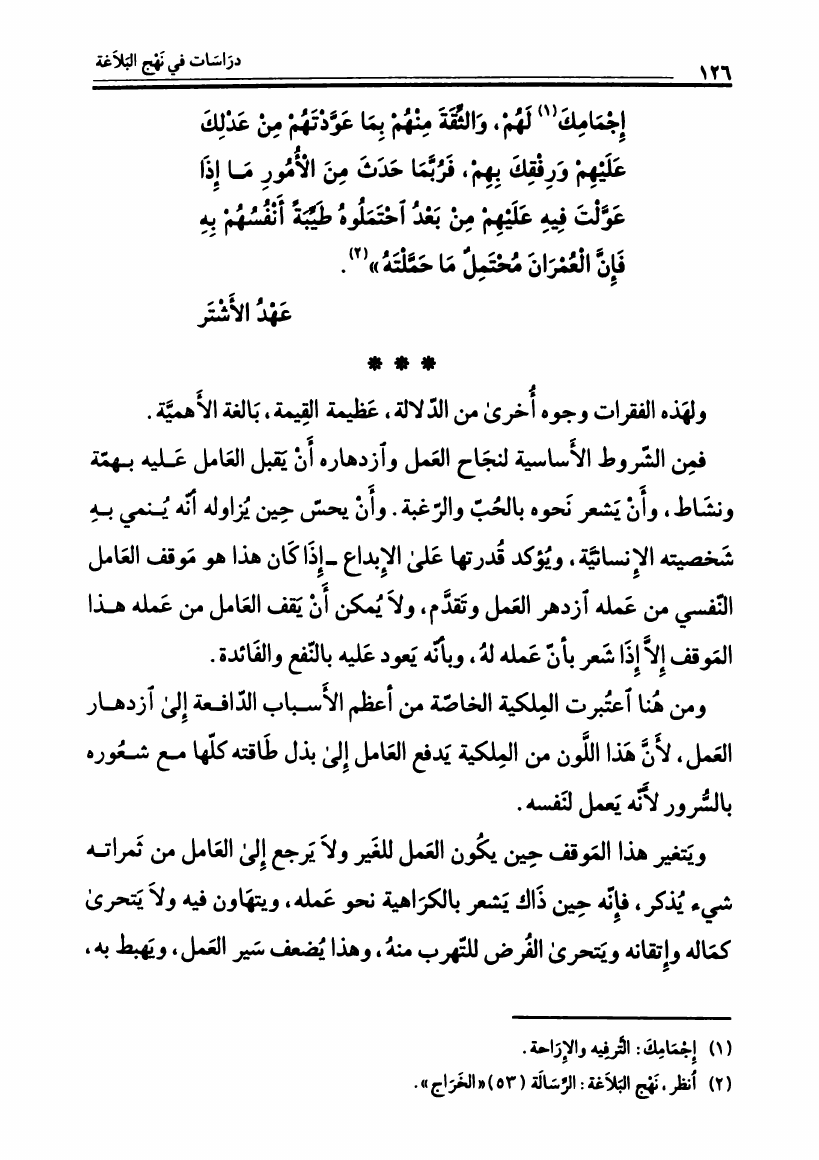 ١٢٦ دِرَاسَات في نَهْج البَلاَغة
إِجْمَامِكَ(١) لَهُمْ، وَالثِّقَةَ مِنْهُمْ بِمَا عَوَّدْتَهُمْ مِنْ عَدْلِكَ
عَلَيْهِمْ وَرِفْقِكَ بِهِمْ، فَرُبَّمَا حَدَثَ مِنَ الْأُمُورِ مَـا إِذَا
عَوَّلْتَ فِيهِ عَلَيْهِمْ مِنْ بَعْدُ آحْتَمَلُوهُ طَيِّبَةً أَنْفُسُهُمْ بِهِ
فَإِنَّ الْعُمْرَانَ مُحْتَمِلٌ مَا حَمَّلْتَهُ»(٢).
عَهْدُ الأَشْتَر
* * *
ولهَذه الفقرات وجوه أُخرىٰ من الدّلالة، عَظيمة القِيمة، بَالغة الأَهميَّة.
فمِن الشّروط الأَساسية لنجَاح العَمل وآزدهاره أَنْ يَقبل العَامل عَـليه بـهمّة
ونشَاط، وأَنْ يَشعر نَحوه بالحُبّ والرّغبة. وأَنْ يحسّ حِين يُزاوله أنّه يُـنمي بـهِ
شَخصيته الإِنسانيَّة، ويُؤكد قُدرتها عَلىٰ الإِبداع ـإِذَا كَان هذا هو مَوقف العَامل
النّفسي من عَمله آزدهر العَمل وتَقدَّم، ولاَ يُمكن أَنْ يَقف العَامل من عَمله هـذا
المَوقف إِلاَّ إِذَا شَعر بأنّ عَمله لهُ، وبأنّه يَعود عَليه بالنّفع والفَائدة.
ومن هُنا آعتُبرت المِلكية الخاصّة من أعظم الأَسـباب الدّافـعة إِلىٰ آزدهـار
العَمل، لأَنَّ هَذا اللَّون من المِلكية يَدفع العَامل إِلىٰ بذل طَاقته كلّها مـع شـعُوره
بالسُّرور لأَنّه يَعمل لنَفسه.
ويَتغير هذا المَوقف حِين يكُون العَمل للغَير ولاَ يَرجع إِلىٰ العَامل من ثَمراتـه
شيء يُذكر، فإِنّه حِين ذَاك يَشعر بالكرَاهية نحو عَمله، ويتهَاون فيه ولاَ يَتحرىٰ
كمَاله وإِتقانه ويَتحرىٰ الفُرض للتّهرب منهُ، وهذا يُضعف سَير العَمل، ويَهبط به،
(١) إِجْمَامِكَ: التَّرفِيه والإِرَاحة.
(٢) أنظر، نَهْج البَلاَغة: الرِّسَالَة (٥٣) «الخَرَاج».